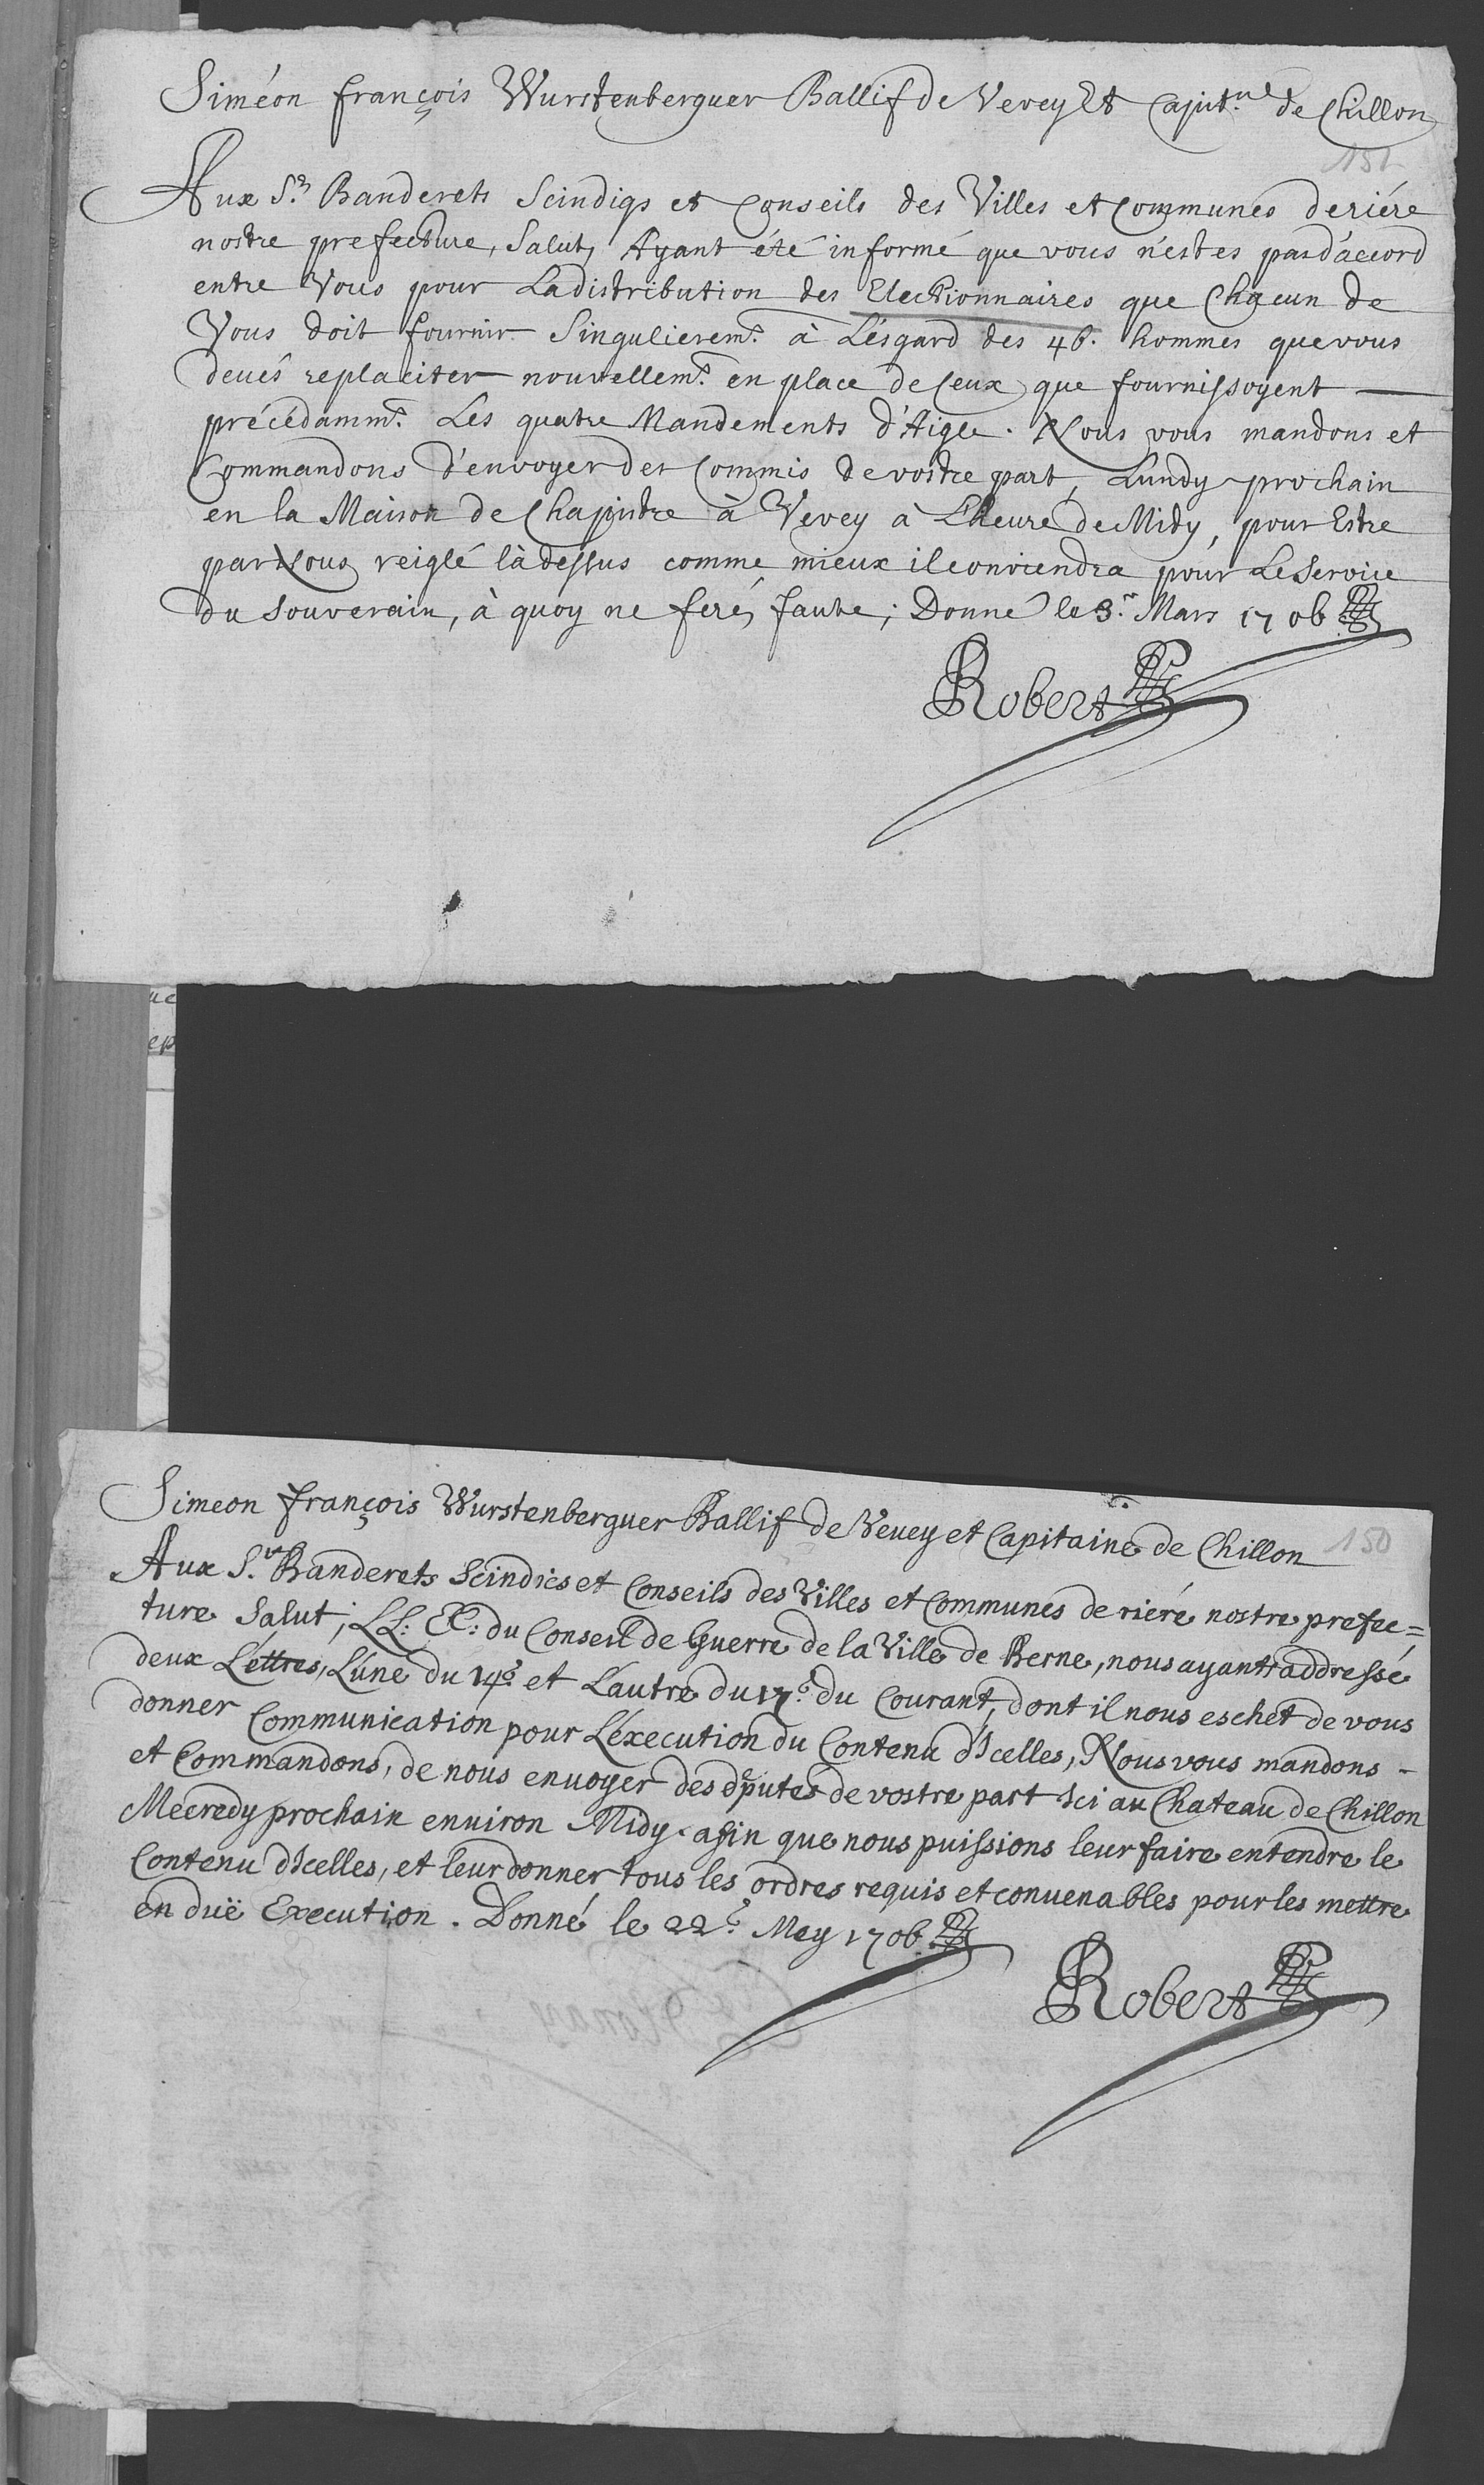 Siméon françois Wurstenberguer Ballif de Vevey Et Capit.ne de Chillon
151
Aux S.rs Banderets Scindiqs et Conseils des Villes et Communes deriére
nostre prefecture, Salut, Ayant été informé que vous n'estes pas d'accord
entre Vous pour La distribution des Electionnaires que Chacun de
Vous doit fournir Singulierem.t à L'ésgard des 46. hommes que vous
devés replaciter nouvellem.t en place de Ceux que fournissoyent
précédamm.t Les quatre Mandements d'Aigle. Nous vous mandons et
Commandons d'envoyer des Commis de vostre part, Lundy prochain
en la Maison de Chapistre à Vevey à L'heure de Midy, pour Estre
par Nous reiglé là dessus comme mieux il conviendra pour Le Service
du Souverain, à quoy ne ferés faute; Donné le 3.e Mars 1706
Robert
uc
ep
Simeon françois Wurstenberguer Ballif de Vevey et Capitaine de Chillon
150
Aux S.rs Banderets Scindics et Conseils des Villes et Communes de riére nostre prefec=
ture Salut; LL: EE: du Conseil de Guerre de la Ville de Berne, nous ayant addressé
deux Léttres, L'úne du 14.e et L'autre du 17.e du Courant, dont il nous eschet de vous
donner Communication pour L'éxecution du Contenu d'Icelles, Nous vous mandons -
et Commandons, de nous envoyer des députés de vostre part Ici au Chateau de Chillon
Mécredy prochain environ Midy. afin que nous puissions leur faire entendre le
Contenu d'Icelles, et leur donner tous les ordres requis et convenables pour les mettre
en duë Execution. Donné le 22.e Mey 1706
Robert